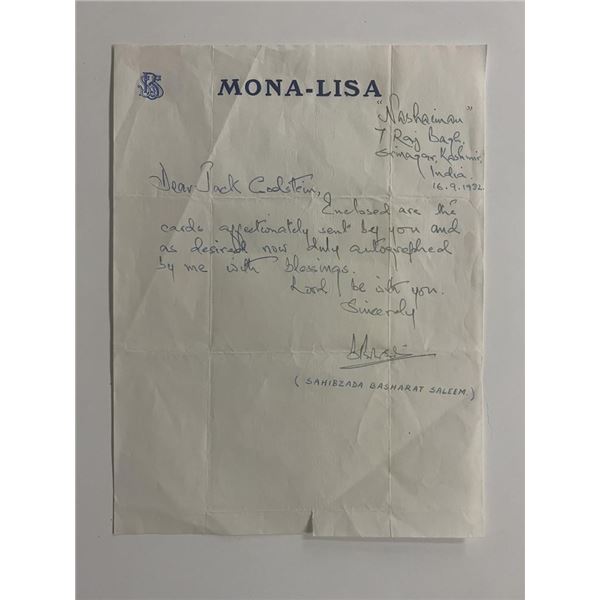 MONA-LISA
"Nashaiman"
7 Raj Bagh,
Srinagar, Kashmir,
India.
16.9.1982
Dear Jack Godstein,
Enclosed are the
cards affectionately sent by you and
as desired now duly autographed
by me with blessings.
Lord be with you.
Sincerely
( SAHIBZADA BASHARAT SALEEM. )